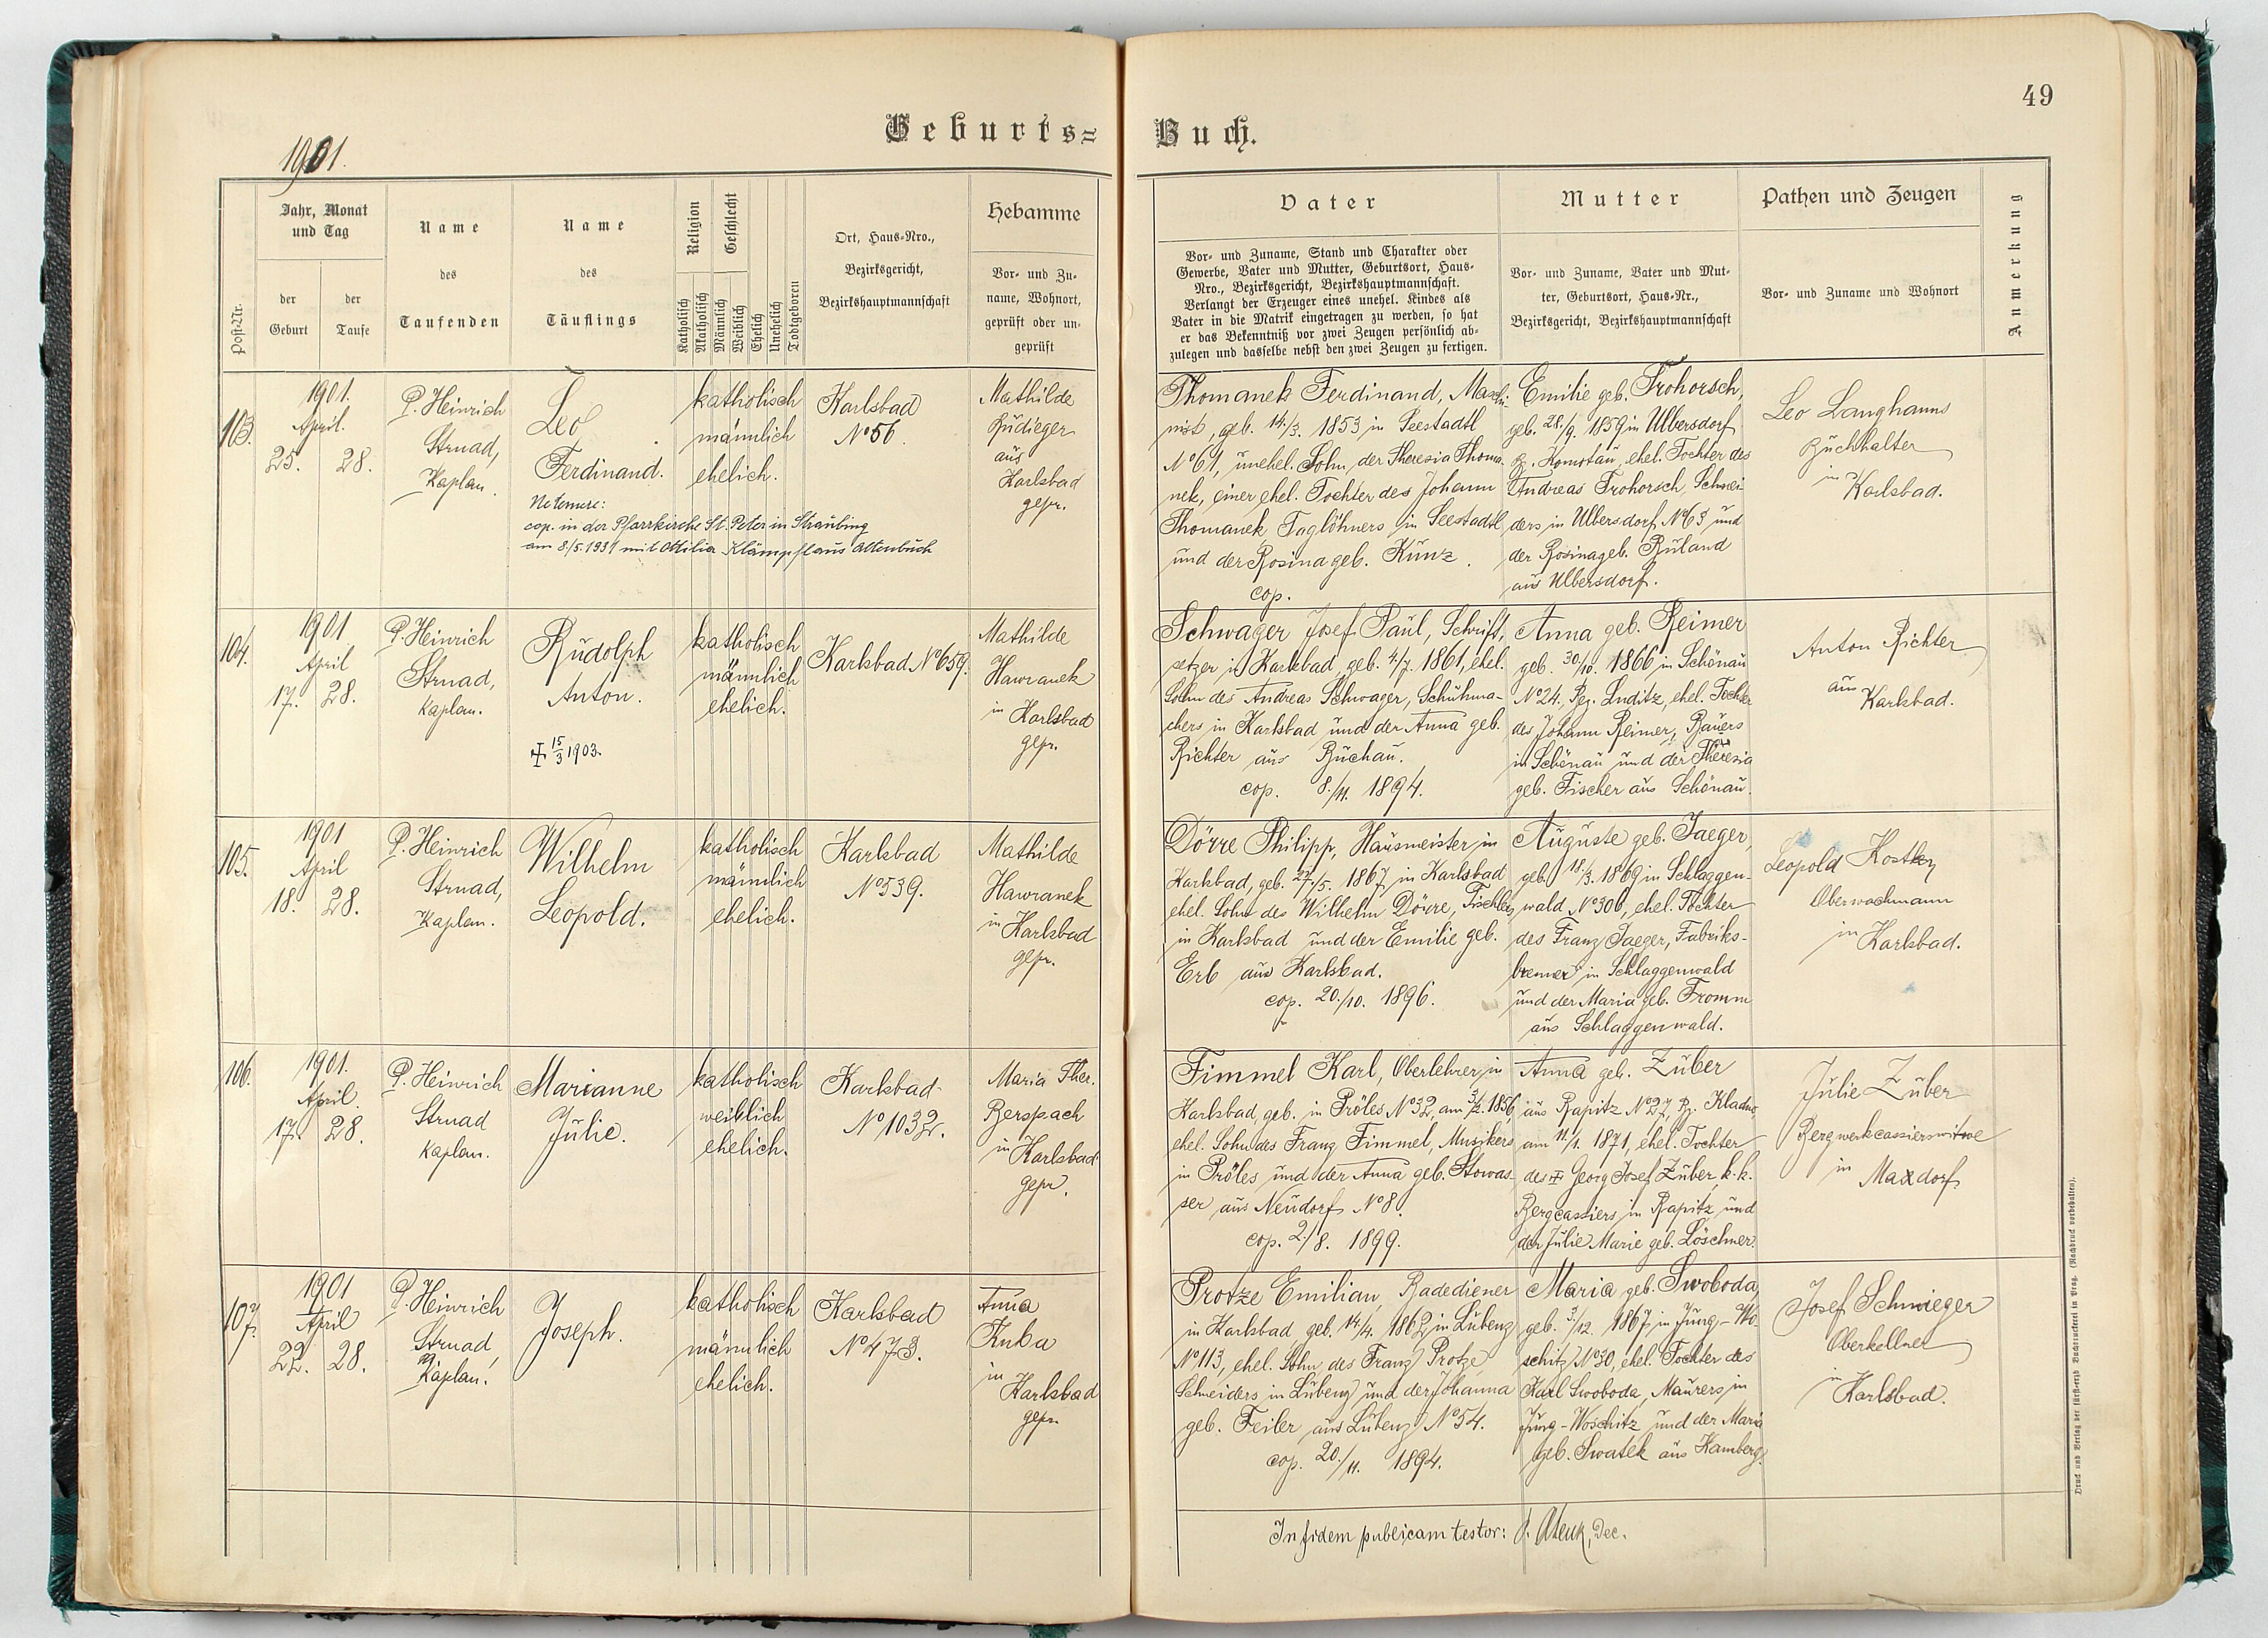 49
Geburts=Buch.
1901.
Post-Nr.
Jahr, Monat
und Tag
der
Geburt
der
Taufe
Name
des
Taufenden
Name
des
Täuflings
Religion
Geschlecht
Katholisch
Akatholisch
Männlich
Weiblich
Ehelich
Unehelich
Todtgeboren
Ort, Haus-Nro.,
Bezirksgericht,
Bezirkshauptmannschaft
Hebamme
Vor- und Zu-
name, Wohnort,
geprüft oder un-
geprüft
Vater
Vor- und Zuname, Stand und Charakter oder
Gewerbe, Vater und Mutter, Geburtsort, Haus-
Nro., Bezirksgericht, Bezirkshauptmannschaft.
Verlangt der Erzeuger eines unehel. Kindes als
Vater in die Matrik eingetragen zu werden, so hat
er das Bekenntniß vor zwei Zeugen persönlich ab-
zulegen und dasselbe nebst den zwei Zeugen zu fertigen.
Mutter
Vor- und Zuname, Vater und Mut-
ter, Geburtsort, Haus-Nr.,
Bezirksgericht, Bezirkshauptmannschaft
Pathen und Zeugen
Vor- und Zuname und Wohnort
Anmerkung
103.
1901.
April.
25. 28.
P. Heinrich
Strnad,
Kaplan.
Leo
Ferdinand.
Ne temere:
cop. in der Pfarrkirche St. Peter in Straubing
am 8/5.1931 mit Ottilia Klämpfl aus Altenbuch
katholisch
männlich
ehelich.
Karlsbad
No 56.
Mathilde
Rüdieger
aus
Karlsbad
gepr.
Thomanek Ferdinand, Maschi-
nist, geb. 14./3. 1853 in Seestadtl
No 61, unehel. Sohn der Theresia Thoma-
nek, einer ehel. Tochter des Johann
Thomanek Taglöhners in Seestadtl
und der Rosina geb. Kunz.
cop.
Emilie geb. Frohorsch,
geb. 28./9. 1859 in Ulbersdorf
B. Komotau, ehel. Tochter des
Andreas Frohorsch, Schnei-
ders in Ulbersdorf No 63 und
der Rosina geb. Ruland
aus Ulbersdorf.
Leo Langhanns
Buchhalter
in
Karlsbad.
104.
1901
April
17. 28.
P. Heinrich
Strnad,
Kaplan.
Rudolph
Anton.
✝ 15/3 1903.
katholisch
männlich
ehelich.
Karlsbad No 659.
Mathilde
Hawranek
in Karlsbad
gepr.
Schwager Josef Paul, Schrift,
setzer in Karlsbad, geb. 4./7. 1861, ehel.
Sohn des Andreas Schwager, Schuhma-
chers in Karlsbad und der Anna geb.
Richter aus Buchau.
cop. 8./11. 1894.
Anna geb. Reimer
geb. 30./10. 1866 in Schönau
No 24., Bez. Luditz, ehel. Tochter
des Johann Reimer, Bauers
in Schönau und der Theresia
geb. Fischer aus Schönau.
Anton Richter
aus
Karlsbad.
105.
1901
April
18. 28.
P. Heinrich
Strnad,
Kaplan.
Wilhelm
Leopold.
katholisch
männlich
ehelich.
Karlsbad
No 539.
Mathilde
Hawranek
in Karlsbad
gepr.
Dörre Philipp, Hausmeister in
Karlsbad, geb. 27./5. 1867 in Karlsbad
ehel. Sohn des Wilhelm Dörre, Tischlers
in Karlsbad und der Emilie geb.
Erb aus Karlsbad.
cop. 20./10. 1896.
Auguste geb. Jaeger,
geb. 18./3. 1869 in Schlaggen-
wald No 300, ehel. Tochter
des Franz Jaeger, Fabriks-
brenner in Schlaggenwald
und der Maria geb. Fromm
aus Schlaggenwald.
Leopold
Oberwachmann
in
Karlsbad.
106.
1901.
April.
17. 28.
P. Heinrich
Strnad
Kaplan.
Marianne
Julie.
katholisch
weiblich
ehelich.
Karlsbad
No 1032.
Maria Ther.
Berspach
in Karlsbad
gepr.
Fimmel Karl, Oberlehrer in
Karlsbad, geb. in Pröles No 32, am 3/2. 1856,
ehel. Sohn des Franz Fimmel, Musikers
in Pröles und der Anna geb. Stowas-
ser aus Neudorf No 8.
cop. 2./8. 1899.
Anna geb. Zuber
aus Rapitz No 27, Bz. Kladno
am 11./1. 1871, ehel. Tochter
des ✝ Georg Josef Zuber, k. k.
Bergcassiers in Rapitz und
der Julie Marie geb. Löschner.
Julie Zuber
Bergwerkcassierswitwe
in
Maxdorf
107.
1901
April
22. 28.
P. Heinrich
Strnad,
Kaplan.
Joseph.
katholisch
männlich
ehelich.
Karlsbad
No 473.
Anna
Kuba
in
Karlsbad
gepr.
Protze Emilian, Badediener
in Karlsbad, geb. 14./4. 1862 in Lubenz
No 113, ehel. Sohn des Franz Protze,
Schneiders in Lubenz und der Johanna
geb. Feiler aus Lubenz No 54.
cop. 20./11. 1894.
Maria geb. Swoboda,
geb. 3/12. 1867 in Jung-Wo-
schitz No 30, ehel. Tochter des
Karl Swoboda, Maurers in
Jung-Woschitz und der Maria
geb. Swatek aus Kamberg.
Josef Schwieger
Oberkellner
in
Karlsbad.
In fidem publicam testor: Dec.
Druck und Verlag der fürst-erzb. Buchdruckerei in Prag. (Nachdruck vorbehalten).